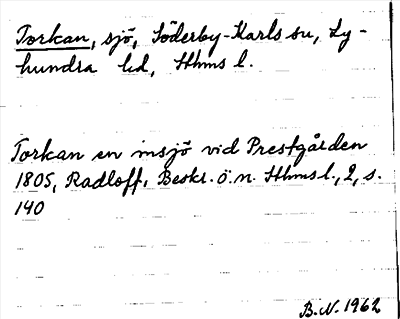 Torkan, sjö, Söderby-Karls sn, Ly-
hundra hd, Sthms l.
Torkan en insjö vid Prestgården
1805, Radloff, Beskr. ö. n. Sthmsl., 2, s.
140
B.N. 1962